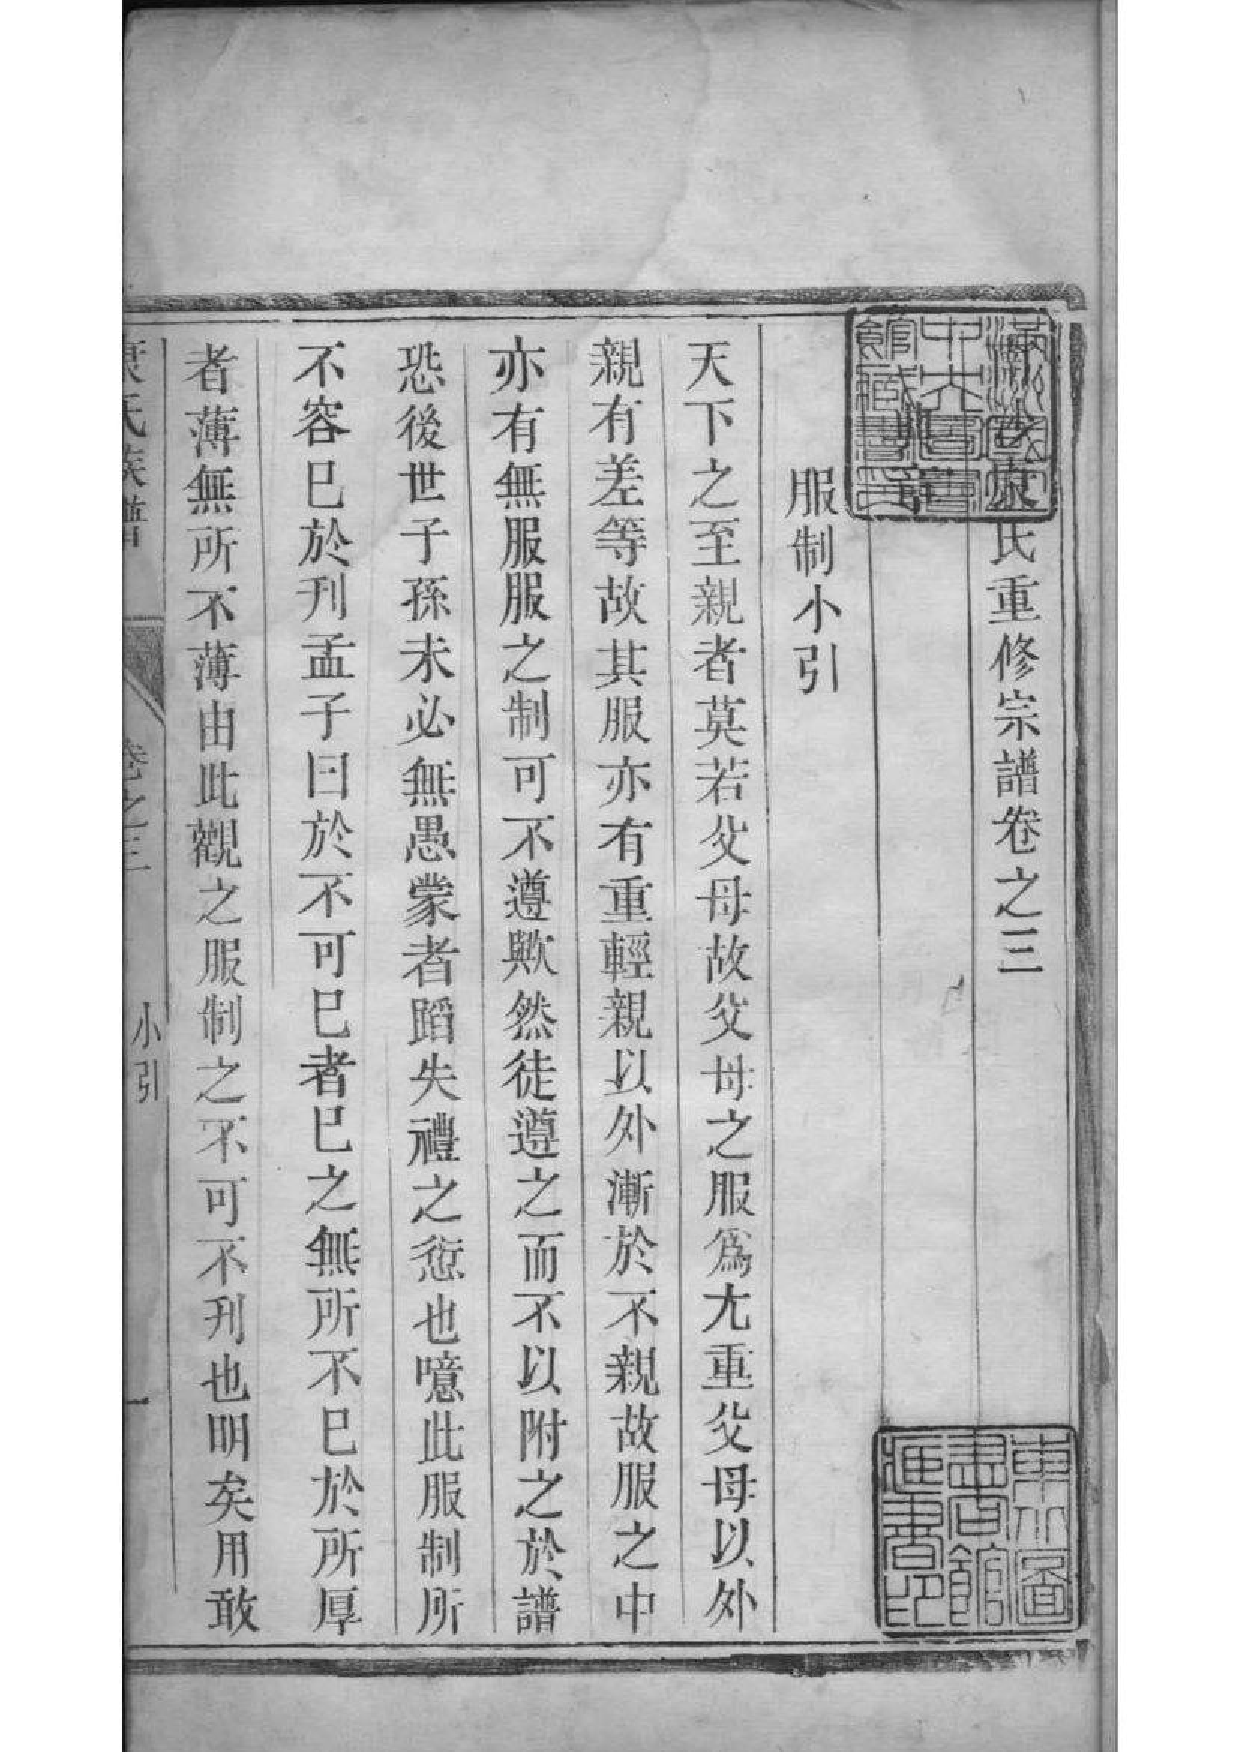 康氏重修宗譜卷之三
服制小引
天下之至親者莫若父母故父母之服爲尢重父母以外
親有差等故其服亦有重輕親以外漸於不親故服之中
亦有無服服之制可不遵歟然徒遵之而不以附之於譜
恐後世子孫未必無愚蒙者蹈失禮之愆也噫此服制所
不容巳於刋孟子曰於不可巳者巳之無所不巳於所厚
者薄無所不薄由此觀之服制之不可不刋也明矣用敢
康氏族譜 卷之三 小引 一